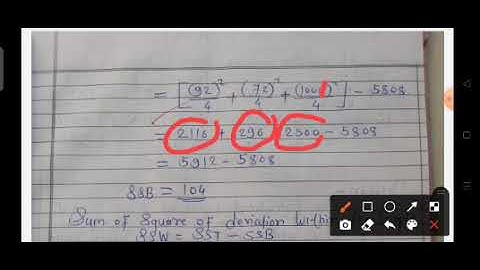 = [(92)²/4 + (72)²/4 + (100)²/4] - 5808
= 2116 + 296 2500 - 5808
= 5912 - 5808
SSB = 104
Sum of Square of deviation
SSW = SST - SSB